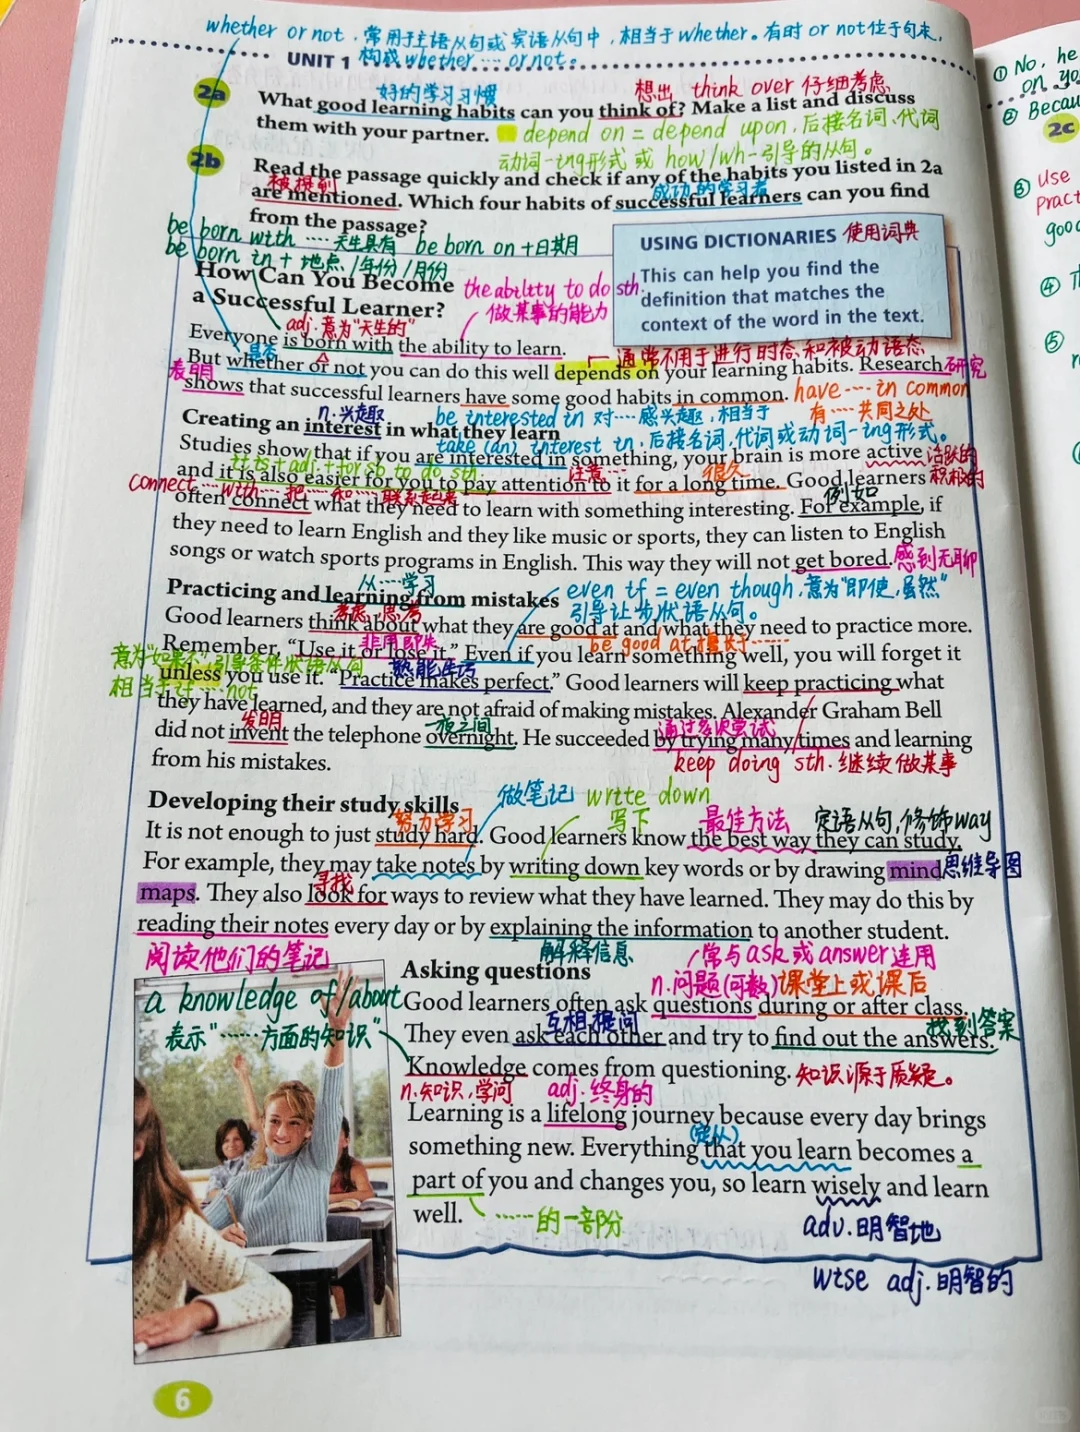 whether or not，常用于主语从句或宾语从句中，相当于whether。有时 or not位于句末，
构成whether…… or not。
UNIT 1
好的学习习惯
想出 think over 仔细考虑
2a
What good learning habits can you think of? Make a list and discuss
them with your partner.
depend on = depend upon，后接名词、代词
动词-ing形式 或 how/wh-引导的从句。
2b
Read the passage quickly and check if any of the habits you listed in 2a
被提到
成功的学习者
are mentioned. Which four habits of successful learners can you find
from the passage?
be born with ……天生具有 be born on +日期
be born in + 地点/年份/月份
USING DICTIONARIES 使用词典
This can help you find the
definition that matches the
context of the word in the text.
How Can You Become
a Successful Learner?
the ability to do sth.
做某事的能力
adj.意为"天生的"
Everyone is born with the ability to learn.
是否
通常不用于进行时态和被动语态
But whether or not you can do this well depends on your learning habits. Research 研究
表明
shows that successful learners have some good habits in common.
have …… in common
有……共同之处
n.兴趣
Creating an interest in what they learn
be interested in 对……感兴趣，相当于
take (an) interest in，后接名词、代词或动词-ing形式。
Studies show that if you are interested in something, your brain is more active 活跃的
积极的
it is + adj. + for sb to do sth.
注意……
很久
and it is also easier for you to pay attention to it for a long time. Good learners
connect……with……把……和……联系起来
例如
often connect what they need to learn with something interesting. For example, if
they need to learn English and they like music or sports, they can listen to English
songs or watch sports programs in English. This way they will not get bored. 感到无聊
从……学习
Practicing and learning from mistakes
even if = even though，意为"即使，虽然"
引导让步状语从句。
考虑，思考
Good learners think about what they are good at and what they need to practice more.
非用即失
be good at 擅长……
Remember, "Use it or lose it." Even if you learn something well, you will forget it
意为"如果不"引导条件状语从句
相当于if……not
熟能生巧
unless you use it. "Practice makes perfect." Good learners will keep practicing what
they have learned, and they are not afraid of making mistakes. Alexander Graham Bell
发明
一夜之间
通过多次尝试
did not invent the telephone overnight. He succeeded by trying many times and learning
from his mistakes.
keep doing sth. 继续做某事
Developing their study skills
做笔记
write down
写下
努力学习
最佳方法
定语从句，修饰way
It is not enough to just study hard. Good learners know the best way they can study.
For example, they may take notes by writing down key words or by drawing mind 思维导图
寻找
maps. They also look for ways to review what they have learned. They may do this by
reading their notes every day or by explaining the information to another student.
阅读他们的笔记
解释信息
Asking questions
常与ask或answer连用
n.问题(可数)
课堂上或课后
a knowledge of/about
表示"……方面的知识"
Good learners often ask questions during or after class.
互相提问
找到答案
They even ask each other and try to find out the answers.
Knowledge comes from questioning. 知识源于质疑。
n.知识，学问
adj.终身的
Learning is a lifelong journey because every day brings
(定从)
something new. Everything that you learn becomes a
part of you and changes you, so learn wisely and learn
well.
……的一部份
adv.明智地
wise adj.明智的
6
① No, he
on, yo
② Becau
2c
③ Use
Pract
good
④
⑤